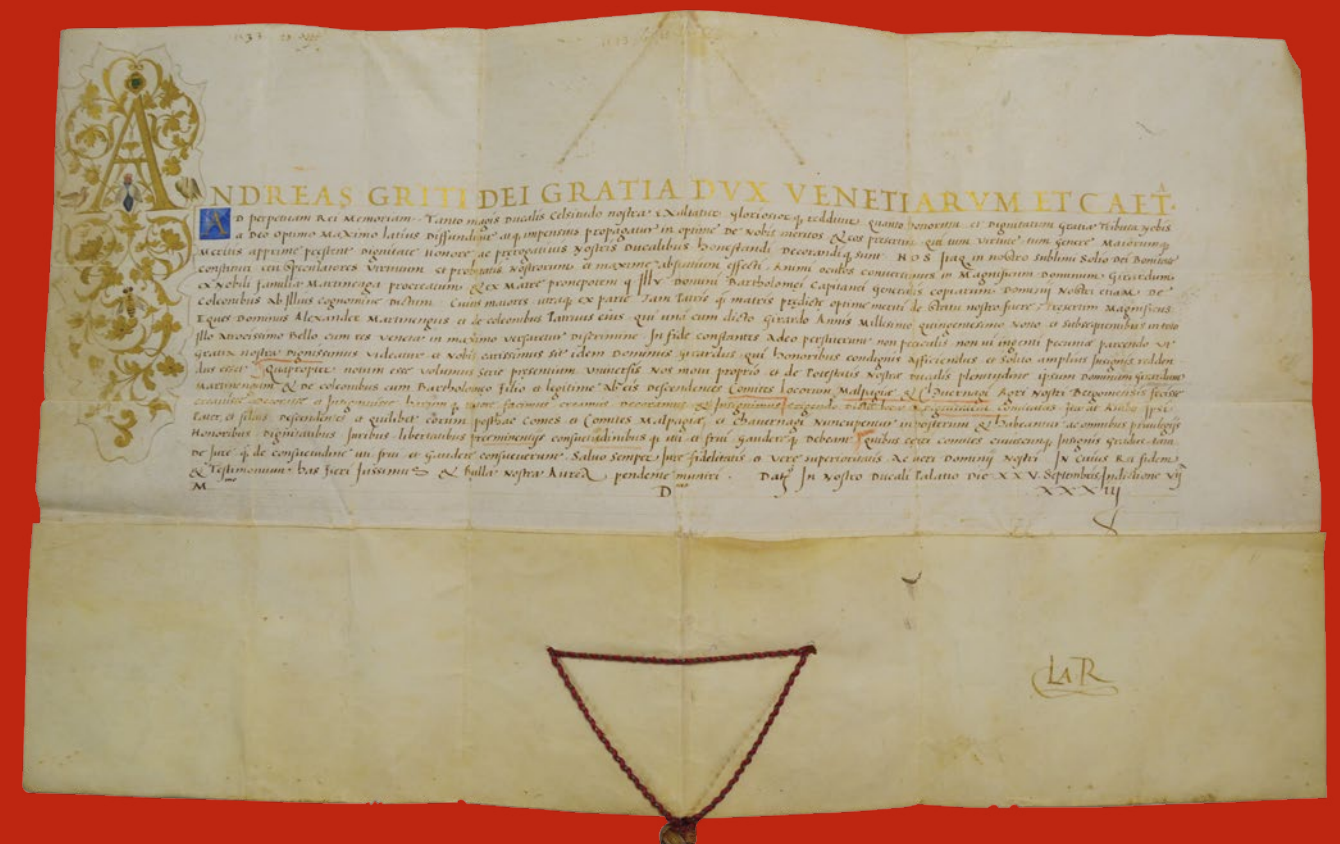 1533 25 Sept
ANDREAS GRITI DEI GRATIA DVX VENETIARVM ET CAET.
AD perpetuam Rei Memoriam. Tanto magis Ducalis Celsitudo nostra exaltatur gloriosiorq redditur quanto honorum et Dignitatum Gratiæ Tributæ Nobis
a Deo optimo Maximo latius Diffunduntur atq impensius propagatur in optime De Nobis meritos & eos presertim qui tum virtute tum genere Maiorumq
Meritis apprime prestent Dignitate honore ac prerogativis Nostris Ducalibus Honestandi Decorandiq sunt. NOS Itaq in nostro sublimi Solio Dei Bonitate
constituti ceu speculatores virtutum et probitatis Nostrorum, et maxime absentium effecti, Animi oculos convertimus in Magnificum Dominum Girardum
ex Nobili familia Martinenga procreatum & ex Matre pronepotem q Illi Domini Bartholomei Capitanei Generalis copiarum Dominij Nostri etiam De
Coleonibus Ab Illius cognomine Dictum. Cuius maiores utraq ex parte Tam Patris q matris predicte optime meriti de Statu nostro fuere: presertim Magnificus
Eques Dominus Alexander Martinengus et de coleonibus Patruus eius, qui una cum dicto Girardo Annis Millesimo quingentesimo Nono et subsequentibus in toto
Illo Atrocissimo Bello cum res Veneta in maximo versaretur Discrimine. In fide constantes Adeo perstiterunt non periculis non ui ingenti pecuniæ parcendo ut
Gratia nostra Dignissimus videatur et Nobis carissimus sit idem Dominus Girardus, qui Honoribus condignis Afficiendus et solito amplius Insignis redden-
dus esset. Quapropter notum esse volumus serie presentium Universis Nos motu proprio et de Potestatis Nostræ Ducalis plenitudine ipsum Dominum Girardum
Martinengum & De coleonibus cum Bartholomeo Filio et legitime Ab eis Descendentes Comites Locorum Malpagæ & Chavernagi Agri Nostri Bergomensis fecisse
creavisse decorasse et Insignivisse harum q tenore facimus creamus Decoramus & Insignimus erigendo comitatus ita ut Ambo Ipsi
Pater, et filius Descendentes a quilibet eorum posthac Comes et Comites Malpagæ, et Chavernagi Nuncupentur inposterum & Habeantur ac omnibus privilegijs
Honoribus Dignitatibus Iuribus libertatibus preeminentijs consuetudinibus q uti et frui Gaudereq Debeant Quibus ceteri comites cuiuscunq Insignis gradus tam
De Iure q de consuetudine uti frui et gaudere consueverunt. Salvo semper Iure fidelitatis et vere superioritatis Ac veri Dominij Nostri. IN Cuius Rei fidem
& Testimonium has fieri Iussimus & bulla Nostra Aurea pendente muniri. Dat In Nostro Ducali Palatio Die XXV. Septembris Indictione VII
M D XXXIII
LAR